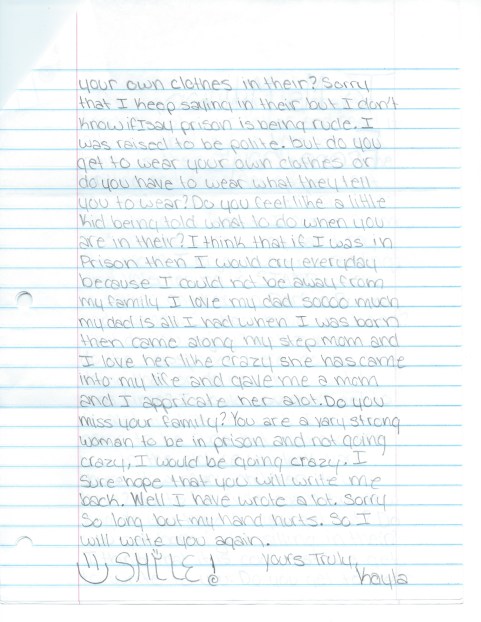 your own clothes in their? Sorry
that I keep saying in their but I don't
know if I say prison is being rude. I
was raised to be polite. but do you
get to wear your own clothes or
do you have to wear what they tell
you to wear? Do you feel like a little
kid being told what to do when you
are in their? I think that if I was in
Prison then I would cry everyday
because I could not be away from
my family I love my dad soooo much
my dad is all I had when I was born
then came along my step mom and
I love her like crazy she has came
into my life and gave me a mom
and I appricate her alot. Do you
miss your family? You are a vary strong
woman to be in prison and not going
crazy, I would be going crazy. I
Sure hope that you will write me
back. Well I have wrote a lot. Sorry
So long but my hand hurts. So I
will write you again.
SMILE! Yours Truly,
Kayla